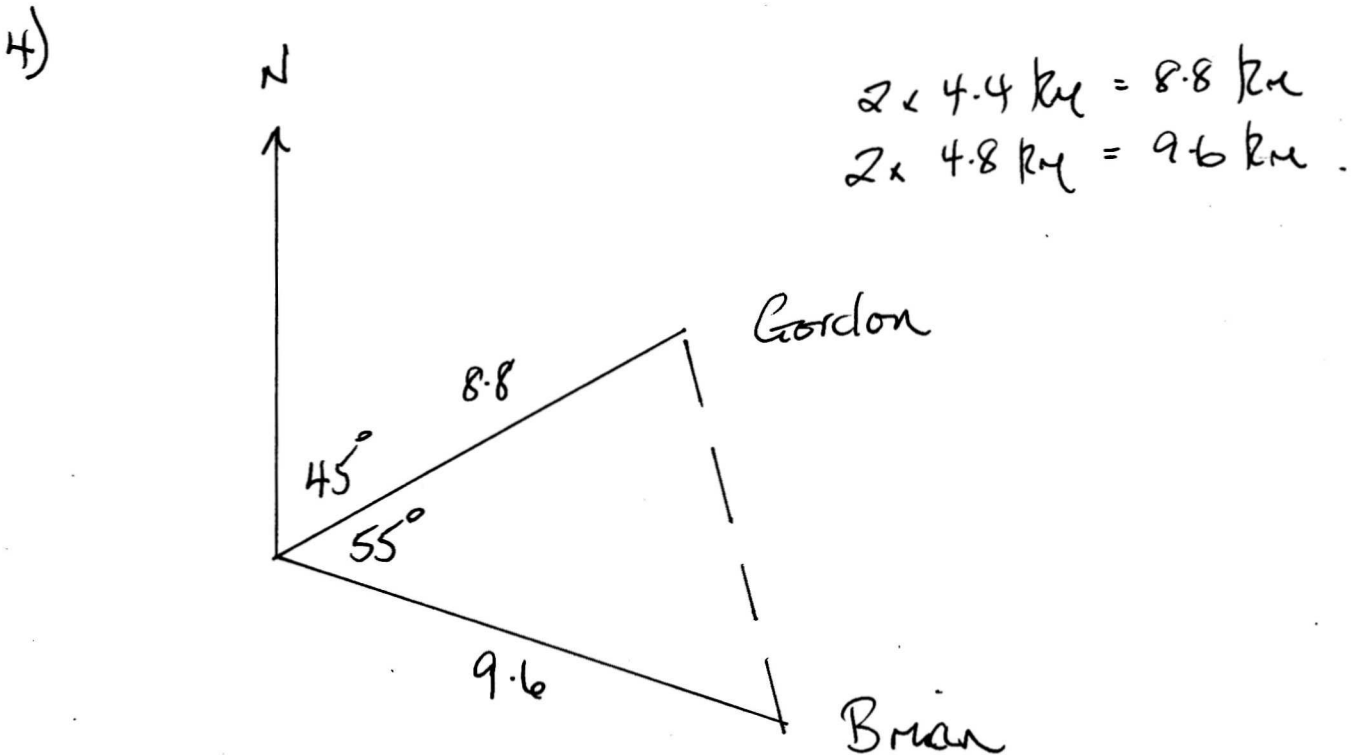 4)
N
2 x 4.4 km = 8.8 km
2 x 4.8 km = 9.6 km.
Gordon
8.8
45°
55°
9.6
Brian